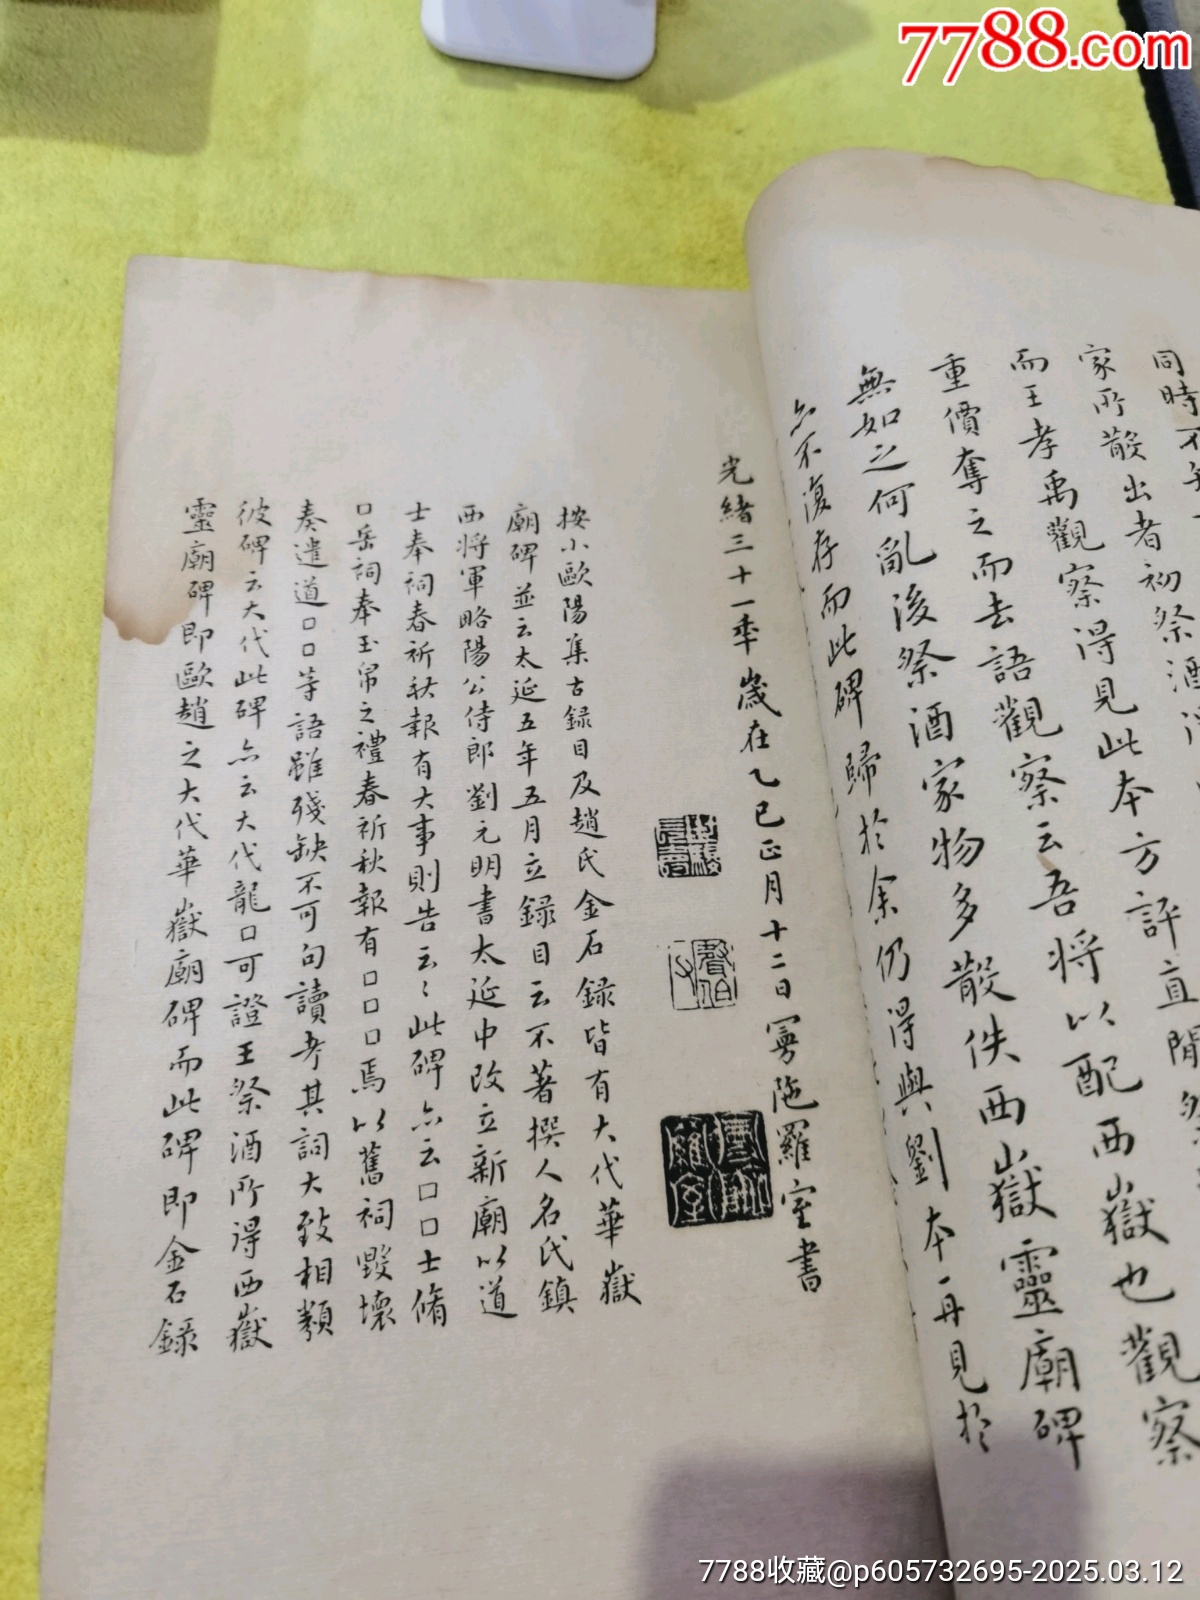 7788.com
同時不
家所散出者初祭酒
而王孝禹觀察得見此本方評直閒
重價奪之而去語觀察云吾將以配西嶽也觀察
無如之何亂後祭酒家物多散佚西嶽靈廟碑
亦不復存而此碑歸於余仍得與劉本一再見於
光緒三十一年歲在乙巳正月十二日夢陁羅室書
按小歐陽集古錄目及趙氏金石錄皆有大代華嶽
廟碑並云太延五年五月立錄目云不著撰人名氏鎮
西將軍略陽公侍郎劉元明書太延中改立新廟以道
士奉祠春祈秋報有大事則告云〻此碑亦云□□士脩
□岳祠奉玉帛之禮春祈秋報有□□□焉以舊祠毀壞
奏遣道□□等語雖殘缺不可句讀考其詞大致相類
彼碑云大代此碑亦云大代龍□可證王祭酒所得西嶽
靈廟碑即歐趙之大代華嶽廟碑而此碑即金石錄
7788收藏@p605732695-2025.03.12